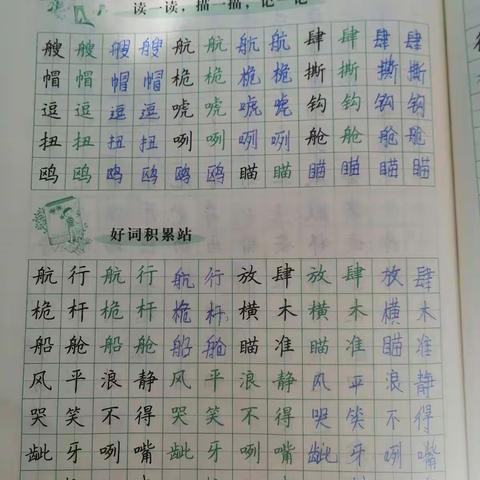 读一读，描一描，记一记
艘艘艘艘航航航航肆肆肆肆
帽帽帽帽桅桅桅桅撕撕撕撕
逗逗逗逗唬唬唬唬钩钩钩钩
扭扭扭扭咧咧咧咧舱舱舱舱
鸥鸥鸥鸥鸥鸥瞄瞄瞄瞄瞄瞄
好词积累站
航行航行航行放肆放肆放肆
桅杆桅杆桅杆横木横木横木
船舱船舱船舱瞄准瞄准瞄准
风平浪静风平浪静风平浪静
哭笑不得哭笑不得哭笑不得
龇牙咧嘴龇牙咧嘴龇牙咧嘴